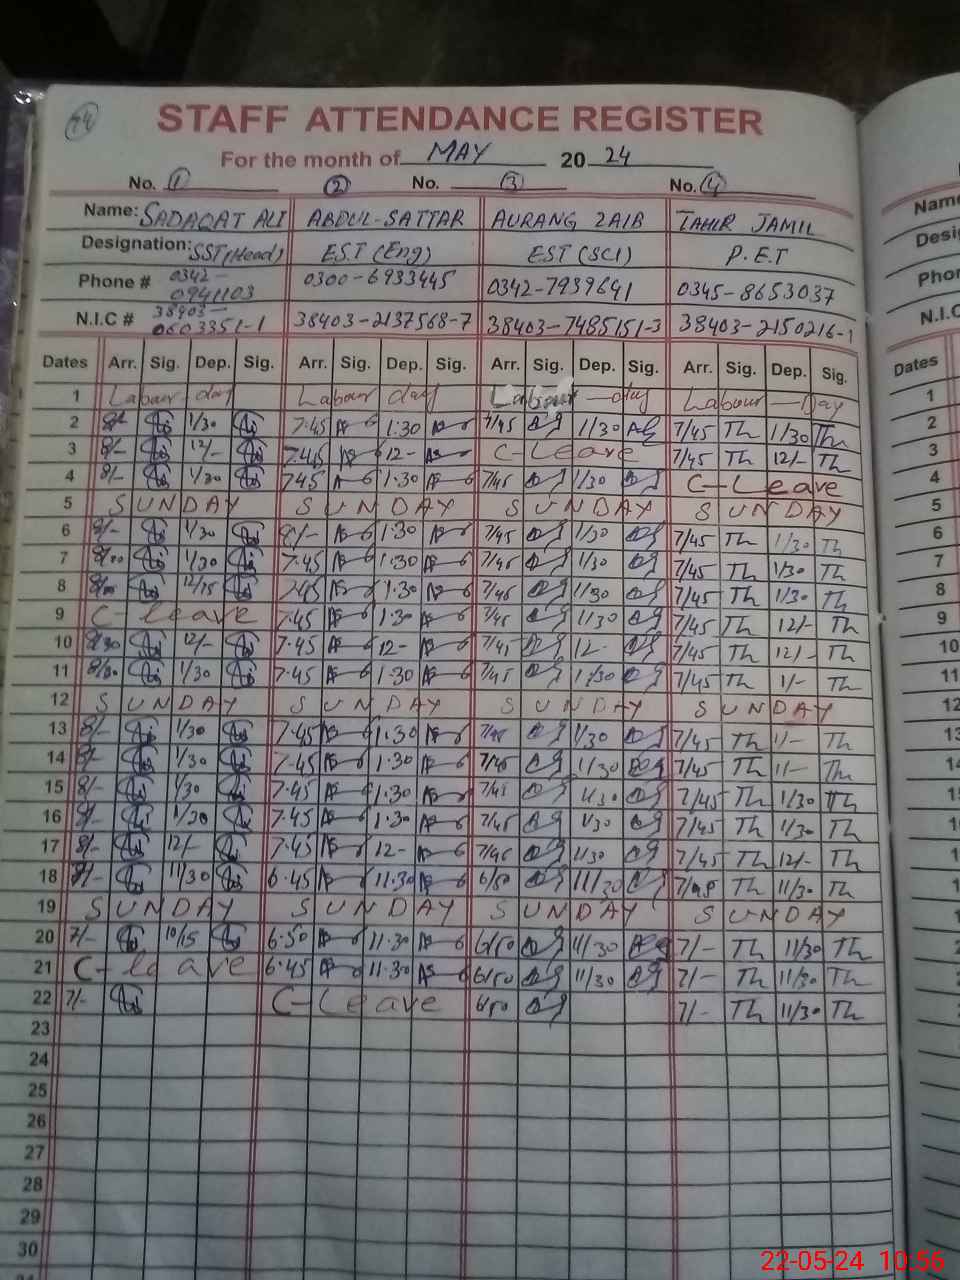 74
STAFF ATTENDANCE REGISTER
For the month of MAY 20 24
No. 1 2 No. 3 No. 4
Name: SADAQAT ALI ABDUL-SATTAR AURANG ZAIB TAHIR JAMIL
Designation: SST (Head) EST (Eng) EST (SCI) P.E.T
Phone # 0342-0941103 0300-6933445 0342-7939641 0345-8653037
N.I.C # 38403-0603351-1 38403-2137568-7 38403-7485151-3 38403-2150216-1
Dates Arr. Sig. Dep. Sig. Arr. Sig. Dep. Sig. Arr. Sig. Dep. Sig. Arr. Sig. Dep. Sig.
1 Labour day Labour day Labour day Labour Day
2 8/- 1/30 7.45 1.30 7/45 1/30 7/45 Th 1/30 Th
3 8/- 12/- 7.45 12- C-Leave 7/45 Th 12/- Th
4 8/- 1/30 7.45 1.30 7/45 1/30 C-Leave
5 SUNDAY SUNDAY SUNDAY SUNDAY
6 8/- 1/30 8/- 1.30 7/45 1/30 7/45 Th 1/30 Th
7 8/00 1/30 7.45 1.30 7/45 1/30 7/45 Th 1/30 Th
8 8/00 12/15 7.45 1.30 7/45 1/30 7/45 Th 1/30 Th
9 C-leave 7.45 1.30 7/45 1/30 7/45 Th 12/- Th
10 12/- 7.45 12- 7/45 12- 7/45 Th 12/- Th
11 1/30 7.45 1.30 7/45 1/30 7/45 Th 1/- Th
12 SUNDAY SUNDAY SUNDAY SUNDAY
13 8/- 1/30 7.45 1.30 7/45 1/30 7/45 Th 1/- Th
14 8/- 1/30 7.45 1.30 7/45 1/30 7/45 Th 1/- Th
15 8/- 1/30 7.45 1.30 7/45 1/30 7/45 Th 1/30 Th
16 8/- 1/30 7.45 1.30 7/45 1/30 7/45 Th 1/30 Th
17 8/- 12/- 7.45 12- 7/45 1/30 7/45 Th 12/- Th
18 11/30 6.45 11.30 6/50 11/30 Th 11/30 Th
19 SUNDAY SUNDAY SUNDAY SUNDAY
20 7/- 10/15 6.50 11.30 6/50 11/30 7/- Th 11/30 Th
21 C-leave 6.45 11.30 6/50 11/30 7/- Th 11/30 Th
22 7/- C-Leave 6/50 7/- Th 11/30 Th
23
24
25
26
27
28
29
30
22-05-24 10:56